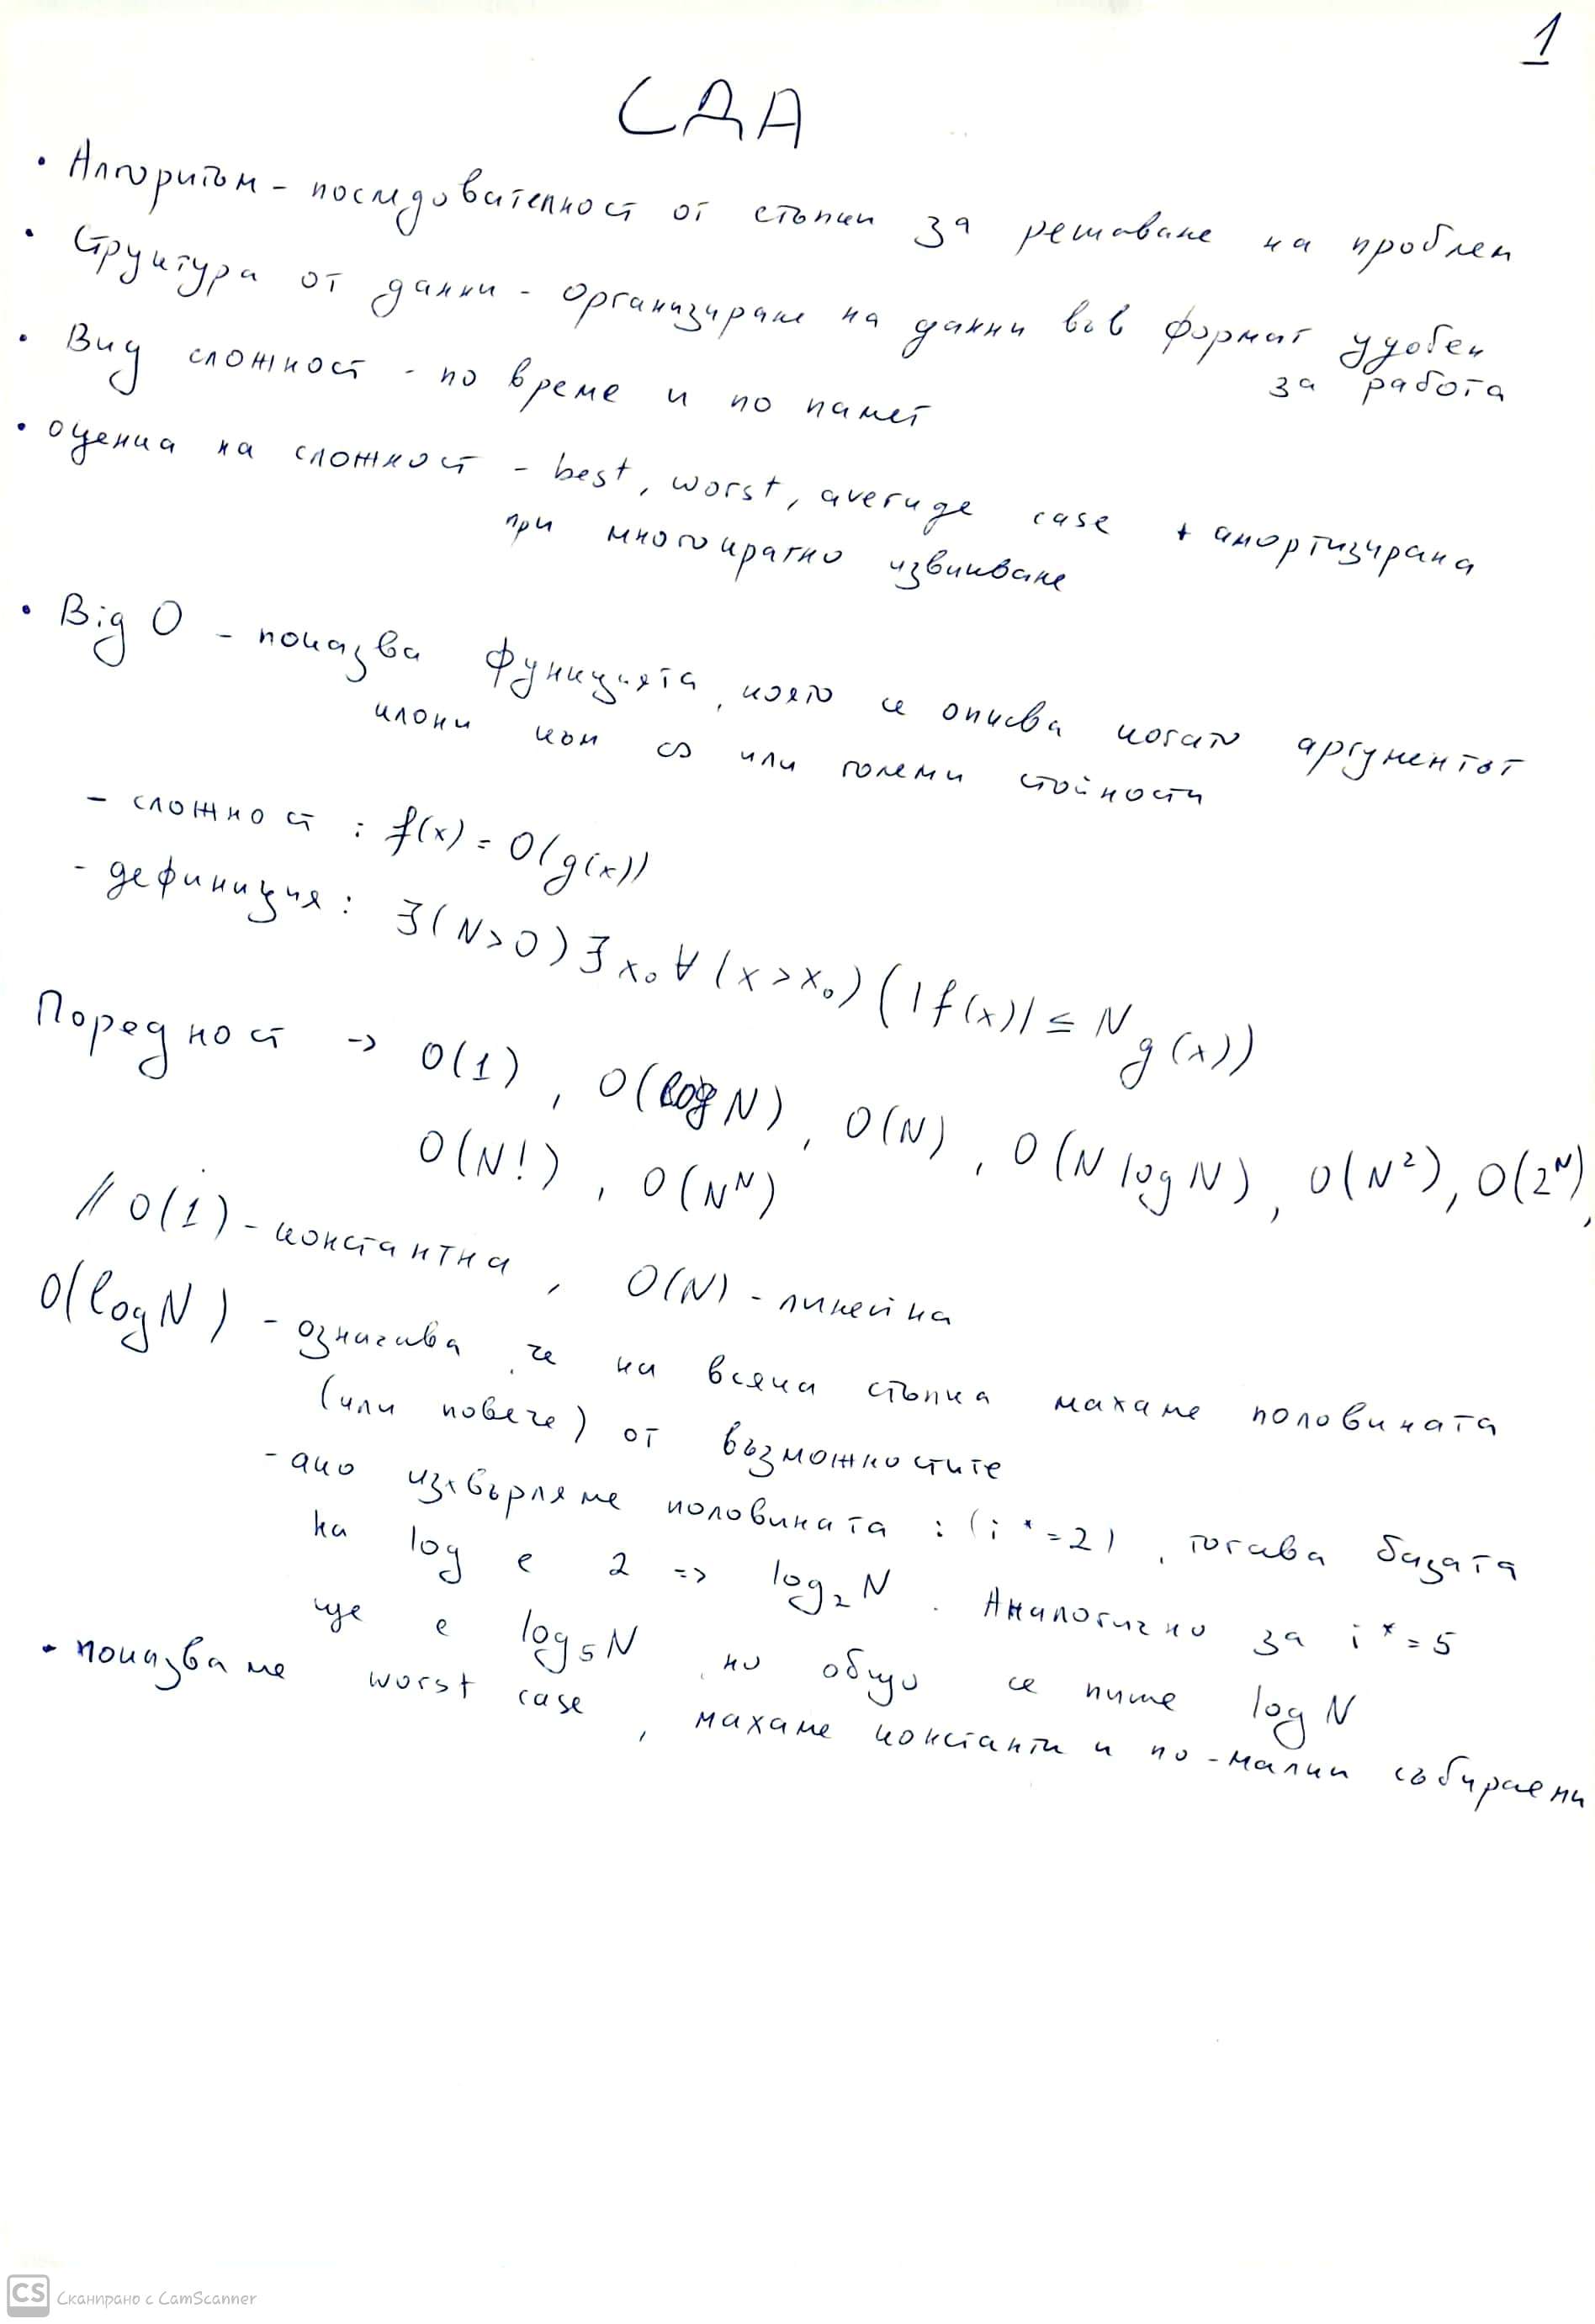 1
СДА
• Алгоритъм - последователност от стъпки за решаване на проблем
• Структура от данни - организиране на данни във формат удобен
за работа
• Вид сложност - по време и по памет
• оценка на сложност - best, worst, average case + амортизирана
при многократно извикване
• Big O - показва функцията, която се описва когато аргументът
клони към ∞ или големи стойности
- сложност : f(x) = O(g(x))
- дефиниция : ∃(N>0)∃x₀∀(x>x₀)(|f(x)| ≤ Ng(x))
Поредност -> O(1), O(logN), O(N), O(N log N), O(N²), O(2ᴺ),
O(N!), O(Nᴺ)
// O(1) - константна, O(N) - линейна
O(logN) - означава, че на всяка стъпка махаме половината
(или повече) от възможностите
- ако изхвърляме половината : (i *= 2), тогава базата
на log е 2 => log₂N. Аналогично за i *= 5
ще е log₅N, но общо се пише log N
• показваме worst case, махаме константи и по-малки събираеми
CS Сканирано с CamScanner